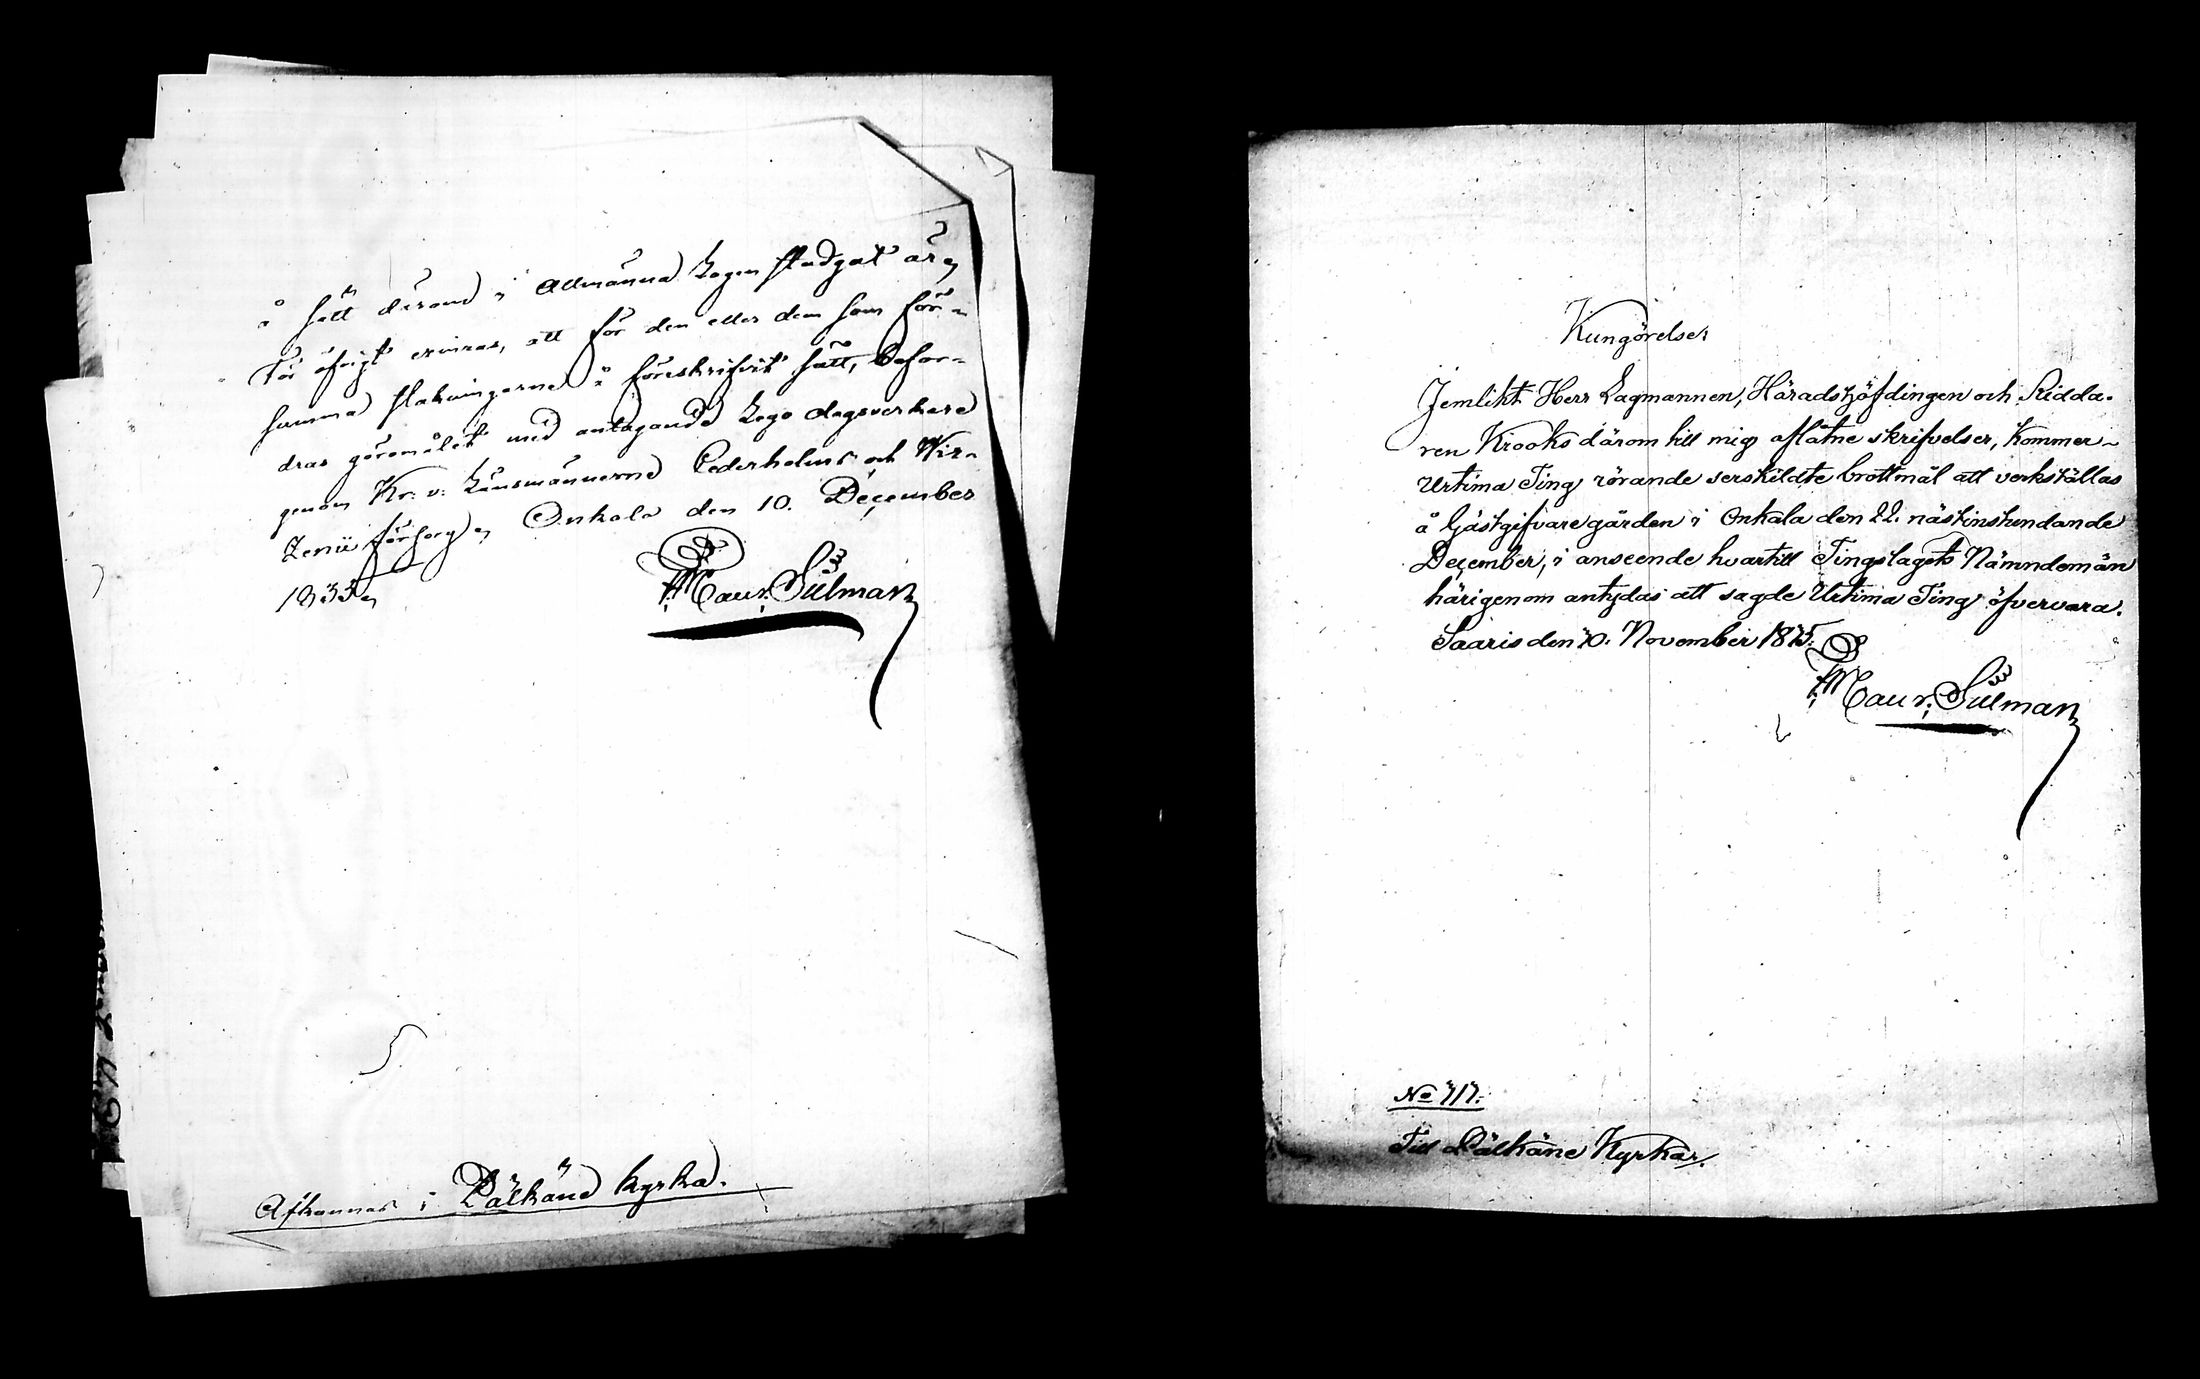 å sätt därom i Allmänna Lagen stadgat är,
För öfrigt erinras, att för den eller dem som för-
samma stakningarne å föreskrifvit sätt, befor-
dras göromålet med antagande Lego dagsverkare
genom Kr: v: Länsmännerne Cederholms och Wir-
Zenii försorg, Onkala den 10. December
1855,
Maur. Silman
Afkunnas i Pälkäne kyrka.
Kungörelse,
Jemlikt Herr Lagmannen, Häradshöfdingen och Ridda-
ren Krooks därom till mig aflåtne skrifvelser, kommer
Urtima Ting rörande serskildte brottmål att verkställas
å Gästgifvaregården i Onkala den 22. nästinstundande
December, i anseende hvartill Tingslagets Nämndemän
härigenom antydas att sagde Urtima Ting öfvervara.
Saaris den 10. November 1875.
Maur. Silman
No 717.
Till Pälkäne Kyrka.